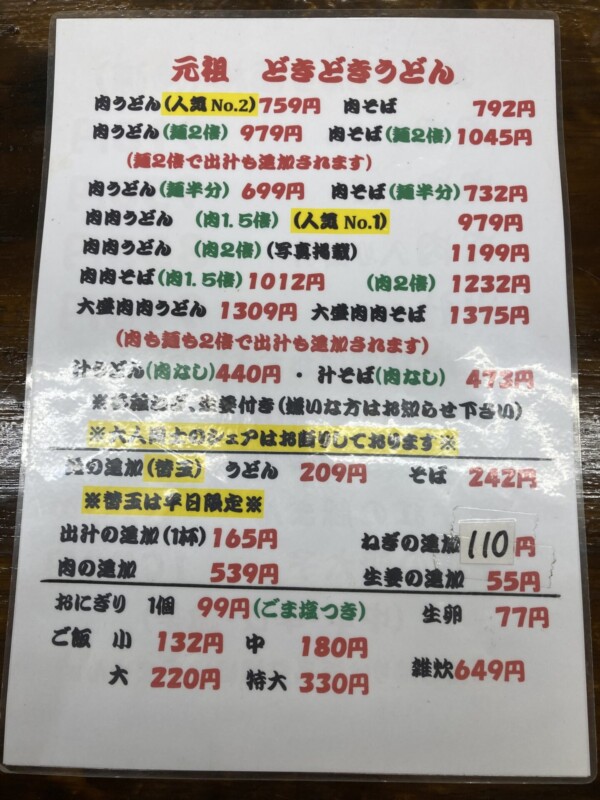 元祖 どきどきうどん
肉うどん(人気No.2)759円 肉そば 792円
肉うどん(麺2倍) 979円 肉そば(麺2倍)1045円
(麺2倍で出汁も追加されます)
肉うどん(麺半分) 699円 肉そば(麺半分)732円
肉肉うどん (肉1.5倍) (人気No.1) 979円
肉肉うどん (肉2倍)(写真掲載) 1199円
肉肉そば(肉1.5倍) 1012円 (肉2倍) 1232円
大盛肉肉うどん 1309円 大盛肉肉そば 1375円
(肉も麺も2倍で出汁も追加されます)
汁うどん(肉なし)440円 ・ 汁そば(肉なし) 473円
生姜付き(嫌いな方はお知らせ下さい)
のシェアはお断りしております※
の追加(替玉) うどん 209円 そば 242円
※替玉は平日限定※
出汁の追加(1杯) 165円 ねぎの追加 110円
肉の追加 539円 生姜の追加 55円
おにぎり 1個 99円(ごま塩つき) 生卵 77円
ご飯 小 132円 中 180円
大 220円 特大 330円 雑炊649円